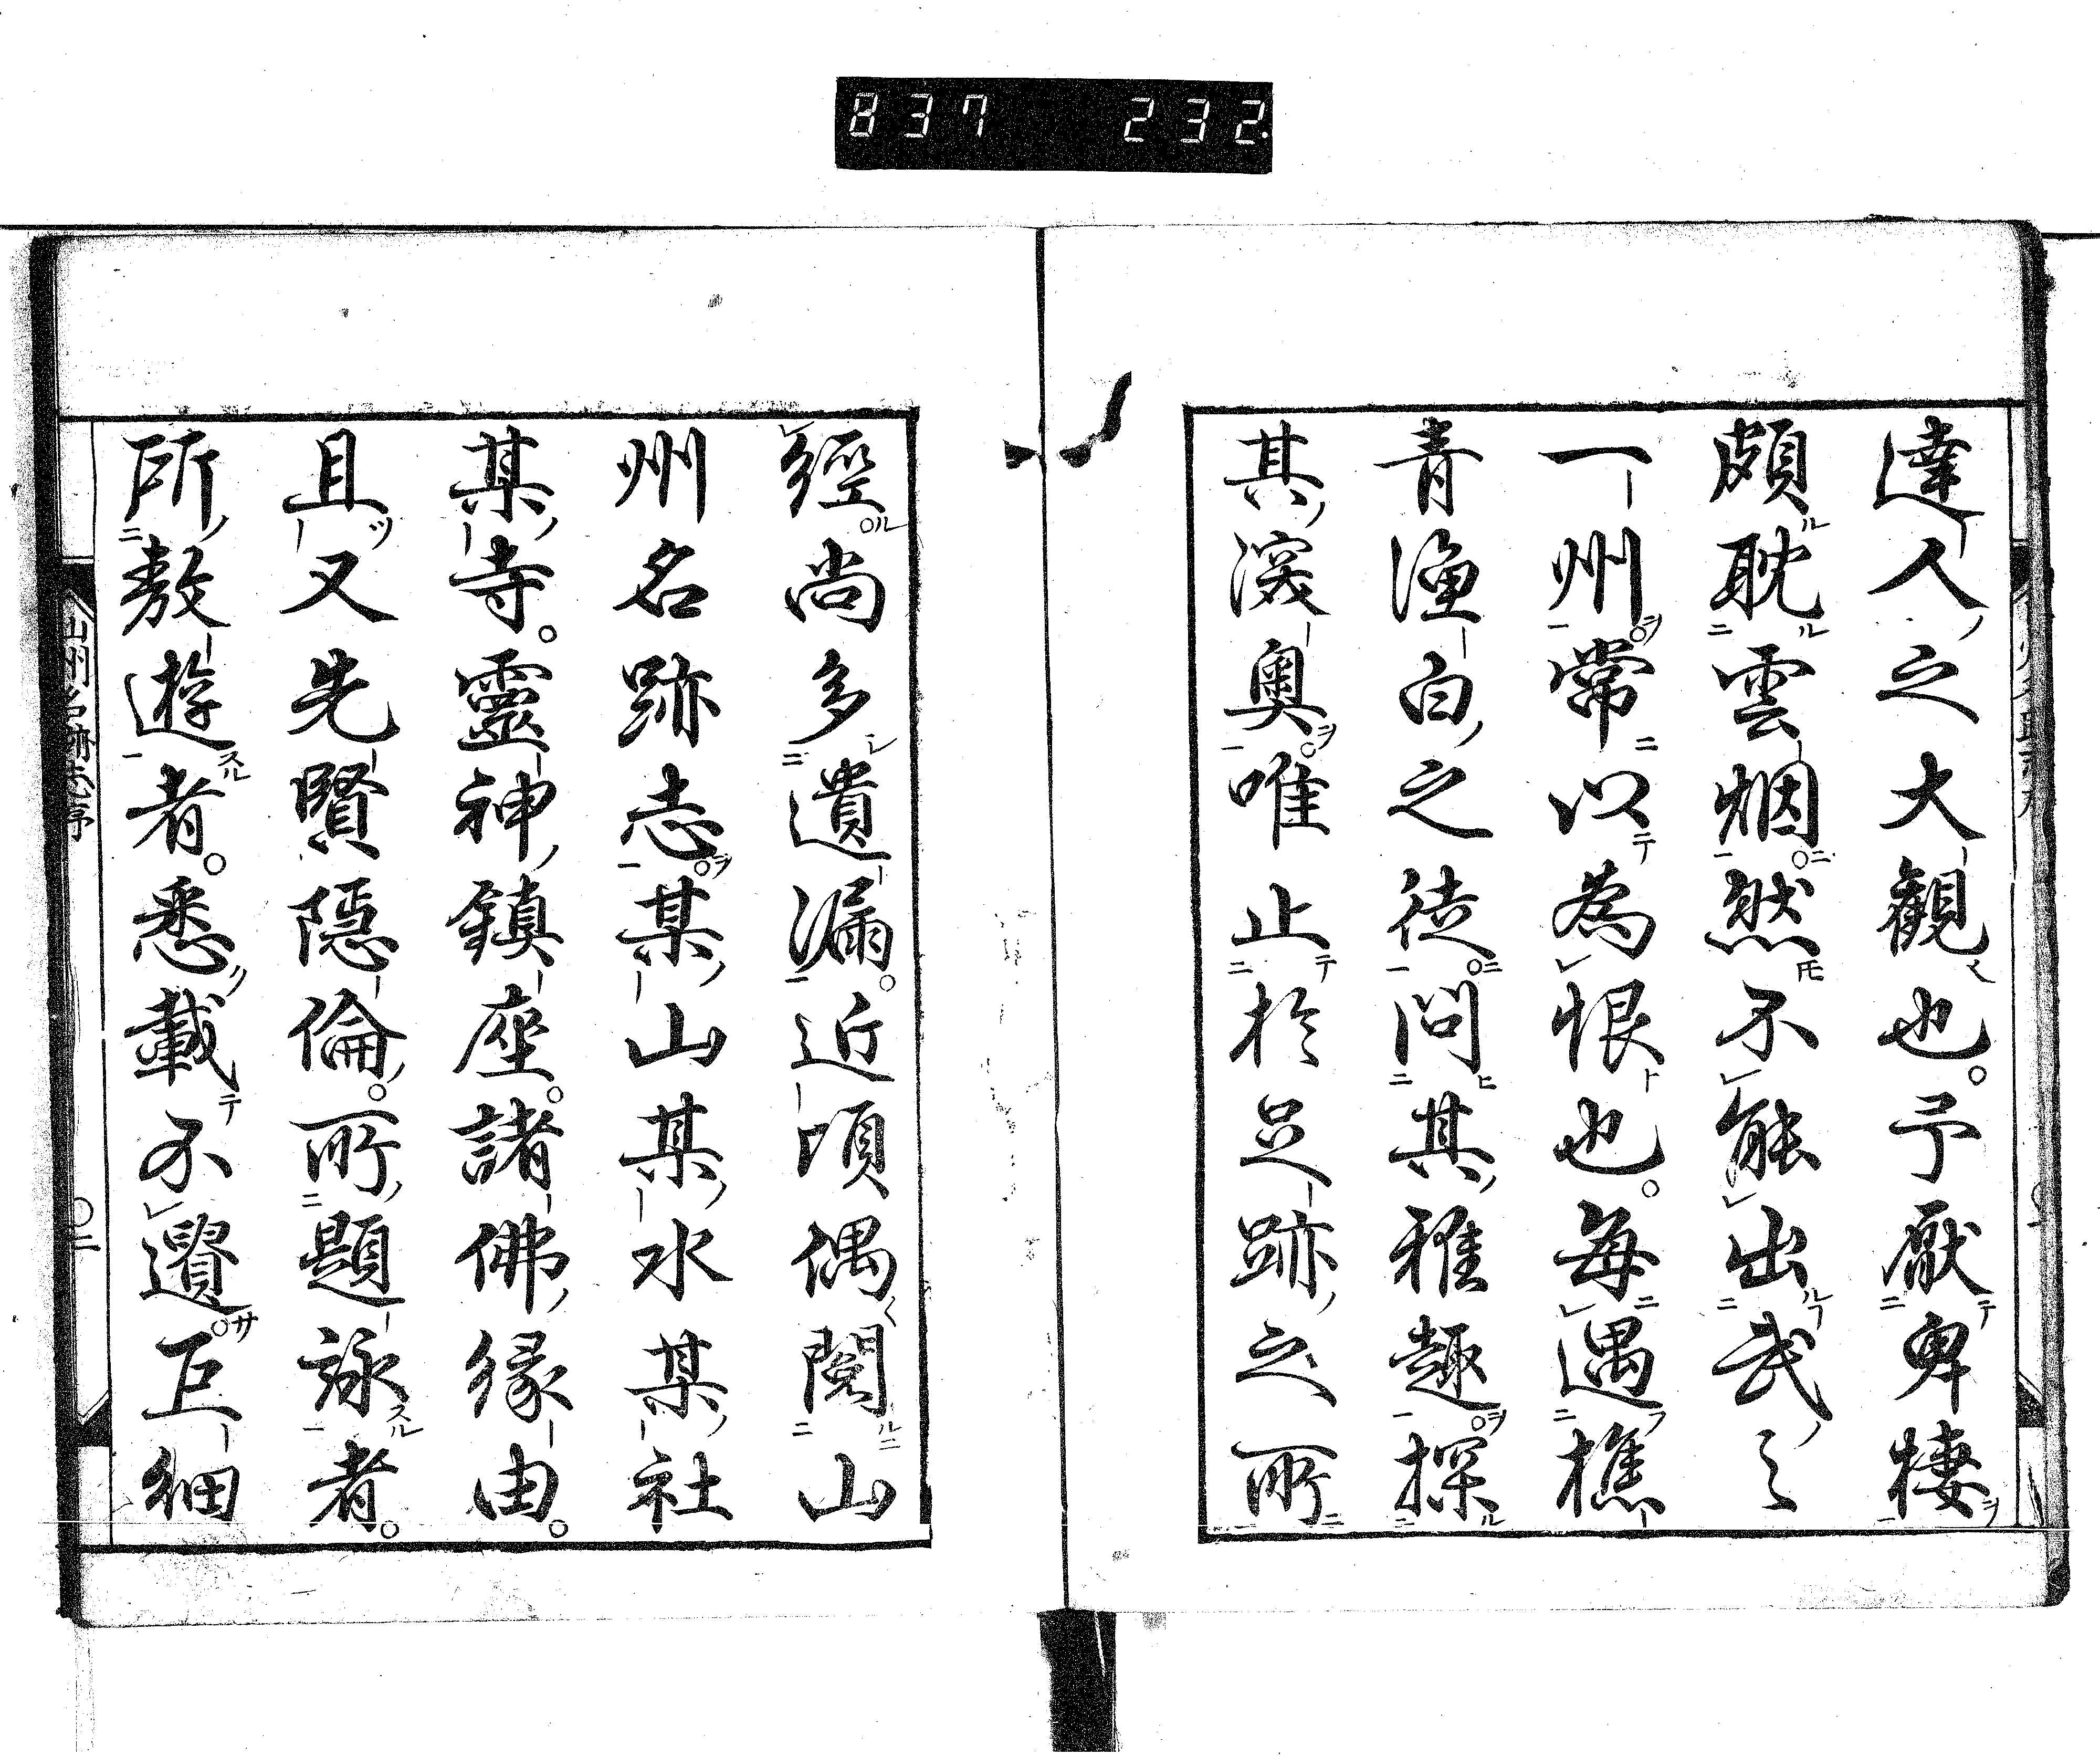 837 232
達人之大觀也。予厭卑棲
頗耽雲烟。然不能出武之
一州。常以為恨也。毎遇樵
青漁白之徒。問其雅趣。探
其深奥。唯止於足跡之所
經。尚多遺漏。近頃偶閲山
州名跡志。某山某水某社
某寺。靈神鎮座。諸佛縁由。
且又先賢隠倫。所題詠者。
所敖遊者。悉載不遺。巨細
山州名跡志序
〇二